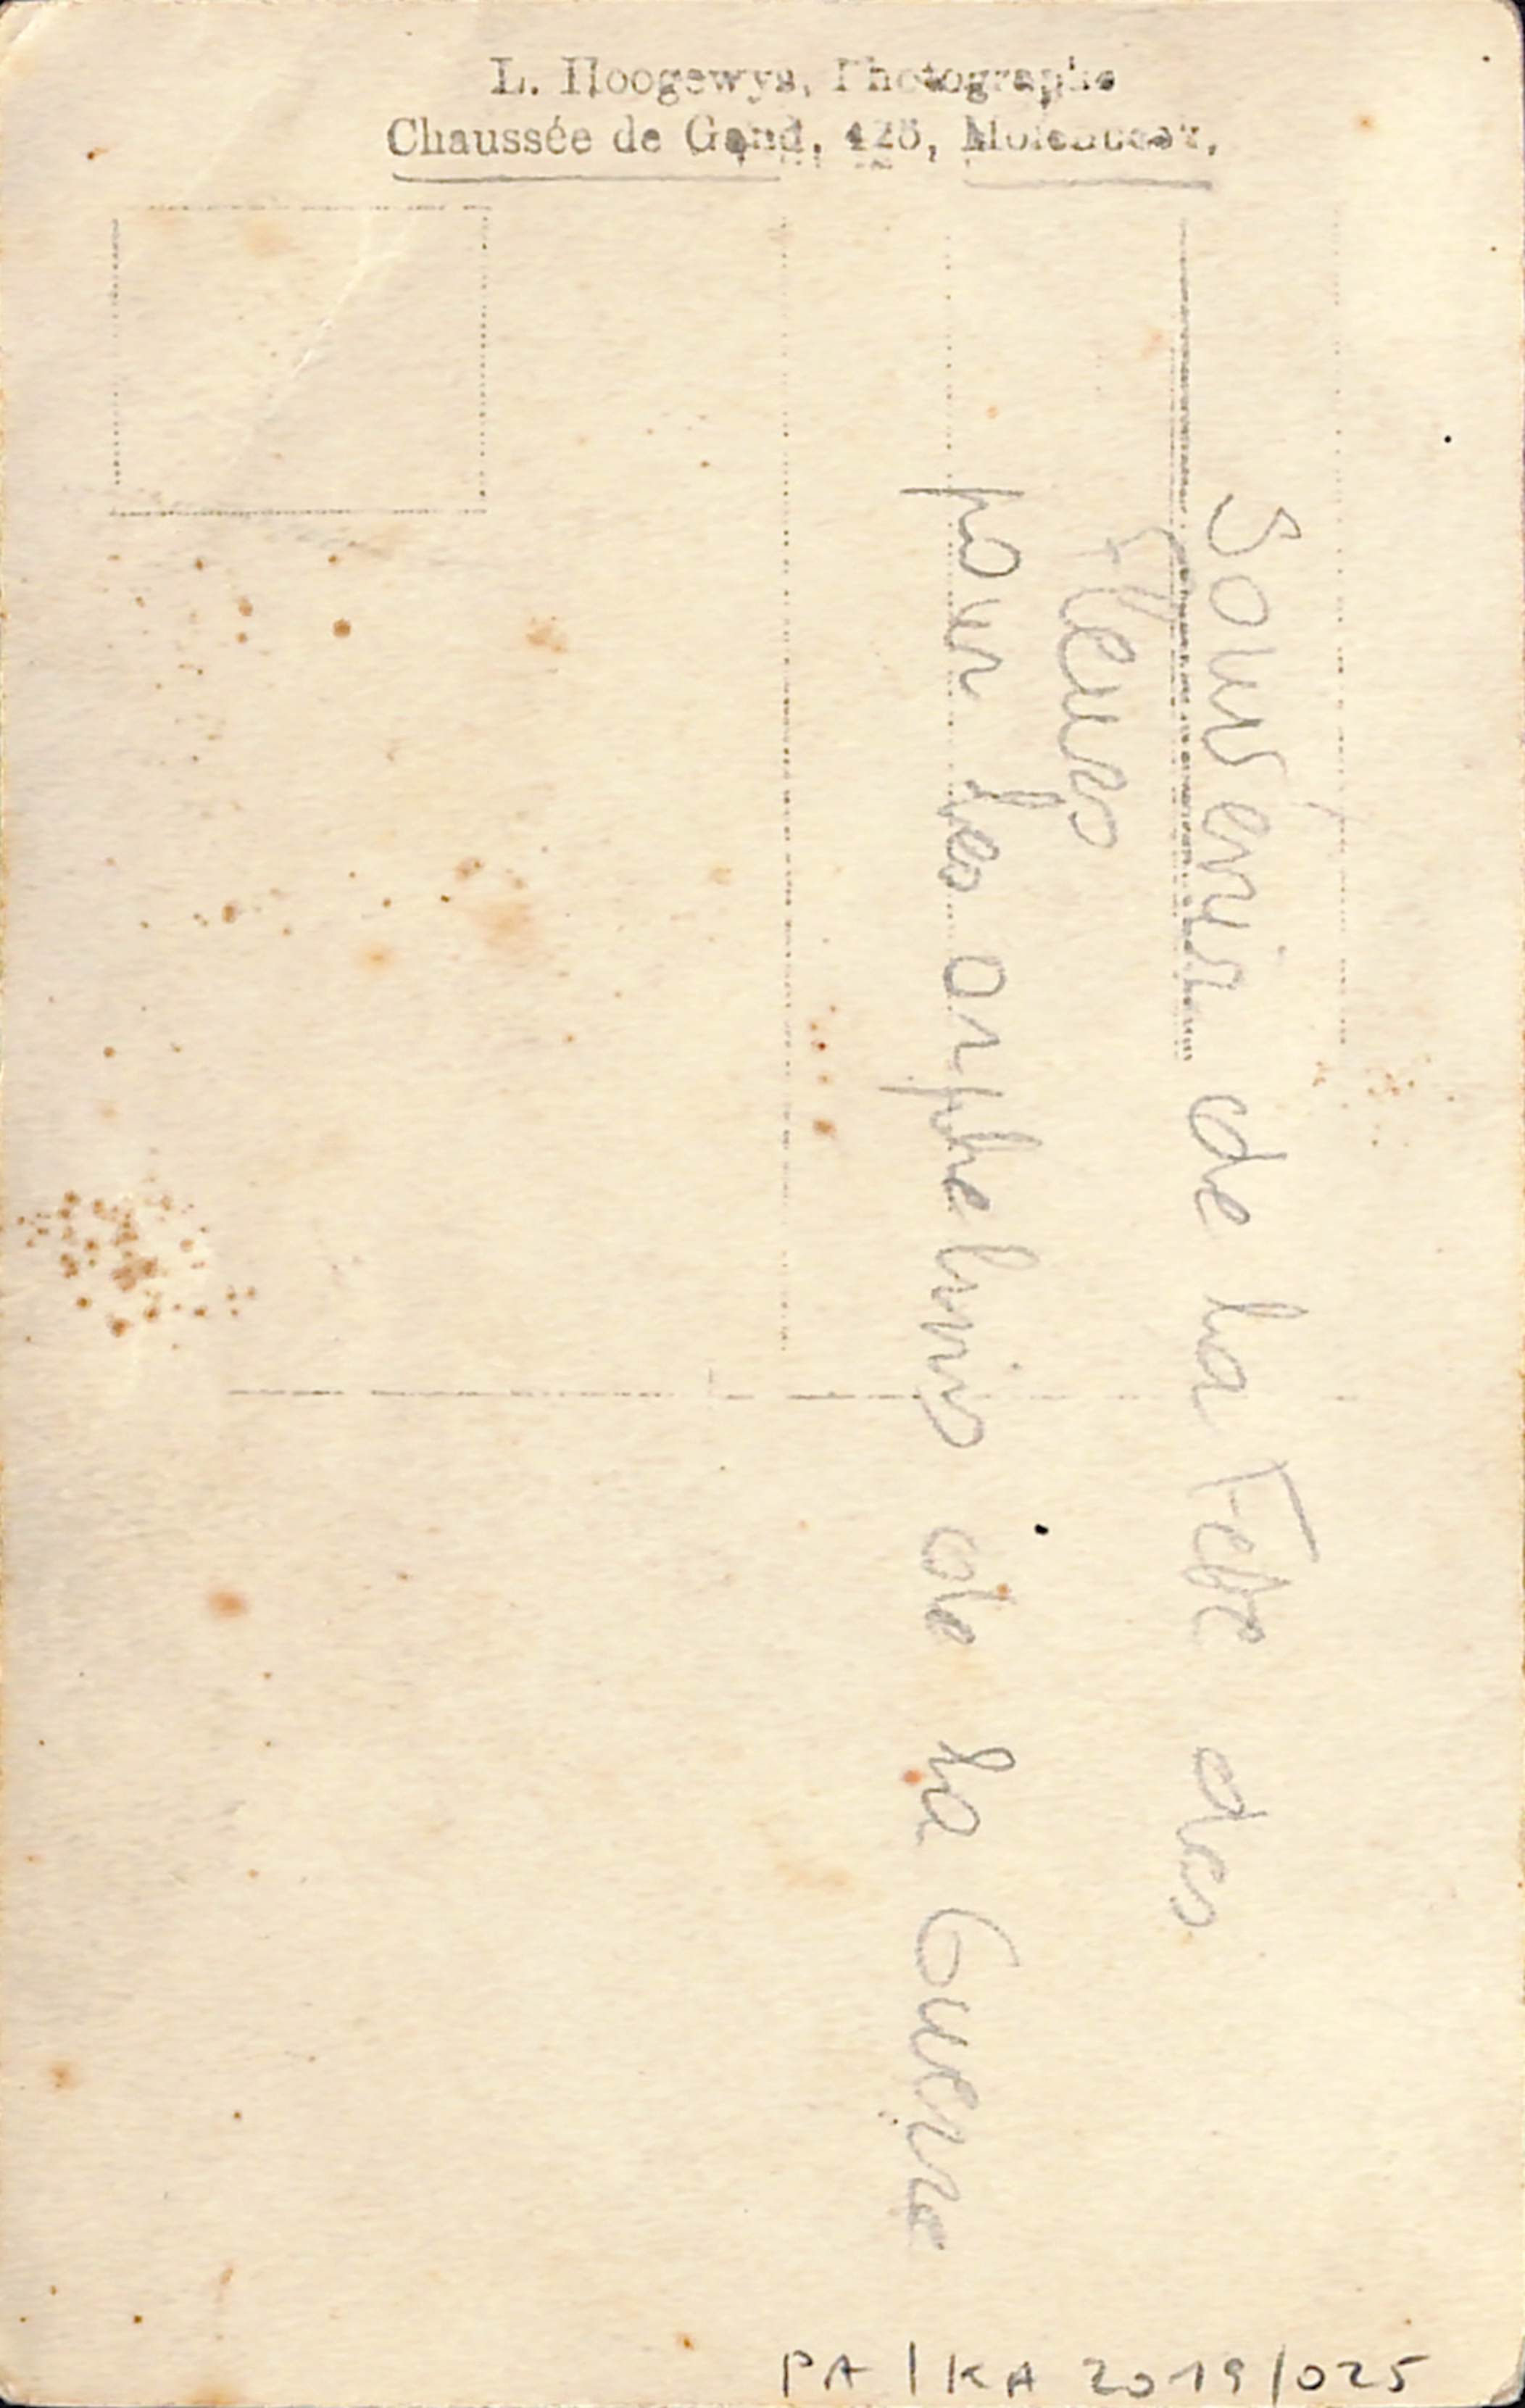 L. Hoogewys, Photographe
Chaussée de Gand, 425, Molenbeek.
Souvenir de la Fete des
fleurs
pour les orphelinis de la Guerre
PA/KA 2019/025